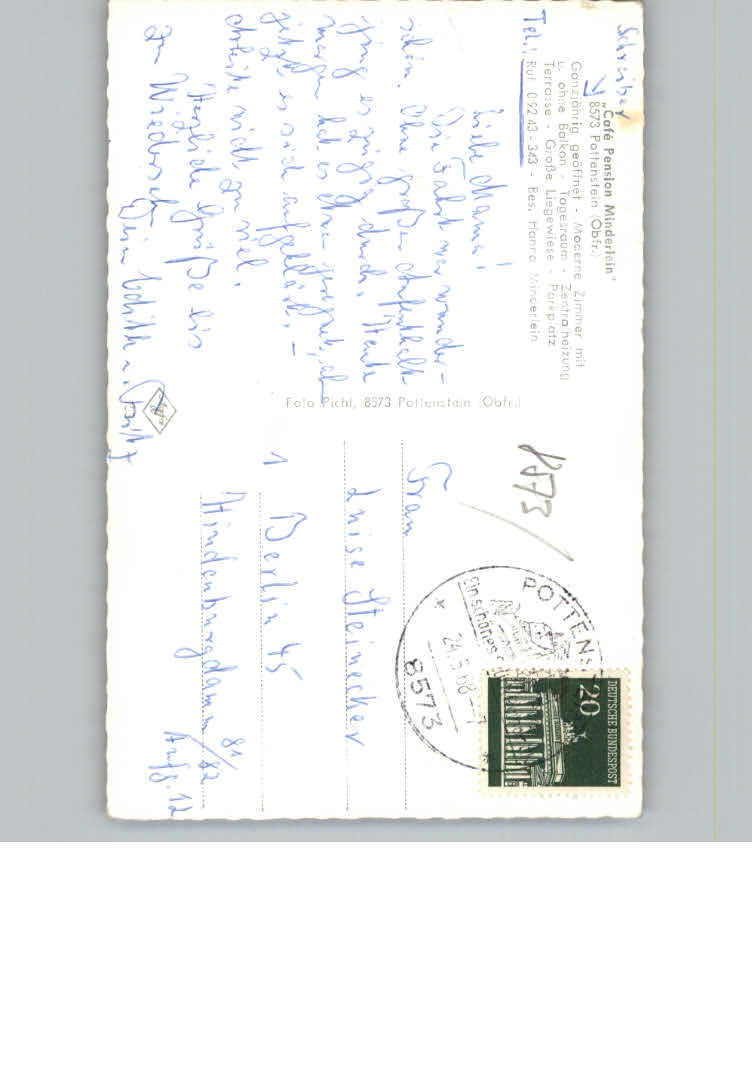 Schreiber
„Café Pension Minderlein"
8573 Pottenstein (Obfr.)
Ganzjährig geöffnet - Moderne Zimmer mit
u. ohne Balkon - Tagesraum - Zentralheizung
Terrasse - Große Liegewiese - Parkplatz
Tel.: Ruf 0 92 43 - 343 - Bes. Hanna Minderlein
Liebe Mama!
Die Fahrt war wunder-
schön. Ohne großen Aufenthalt
ging es zügig durch. Heute
morgen hat es etwas geregnet, ab
jetzt es sich aufgeklärt. –
Arbeite nicht zu viel.
Herzliche Grüße bis
zum Wiedersehen
Deine Edith u. Fritz
Foto Pichl, 8573 Pottenstein (Obfr.)
8573
POTTENS
Ein schönes
24.5.68
8573
DEUTSCHE BUNDESPOST
20
Frau
Luise Steinecker
1 Berlin 45
Hindenburgdamm 81/82
Aufg. 12